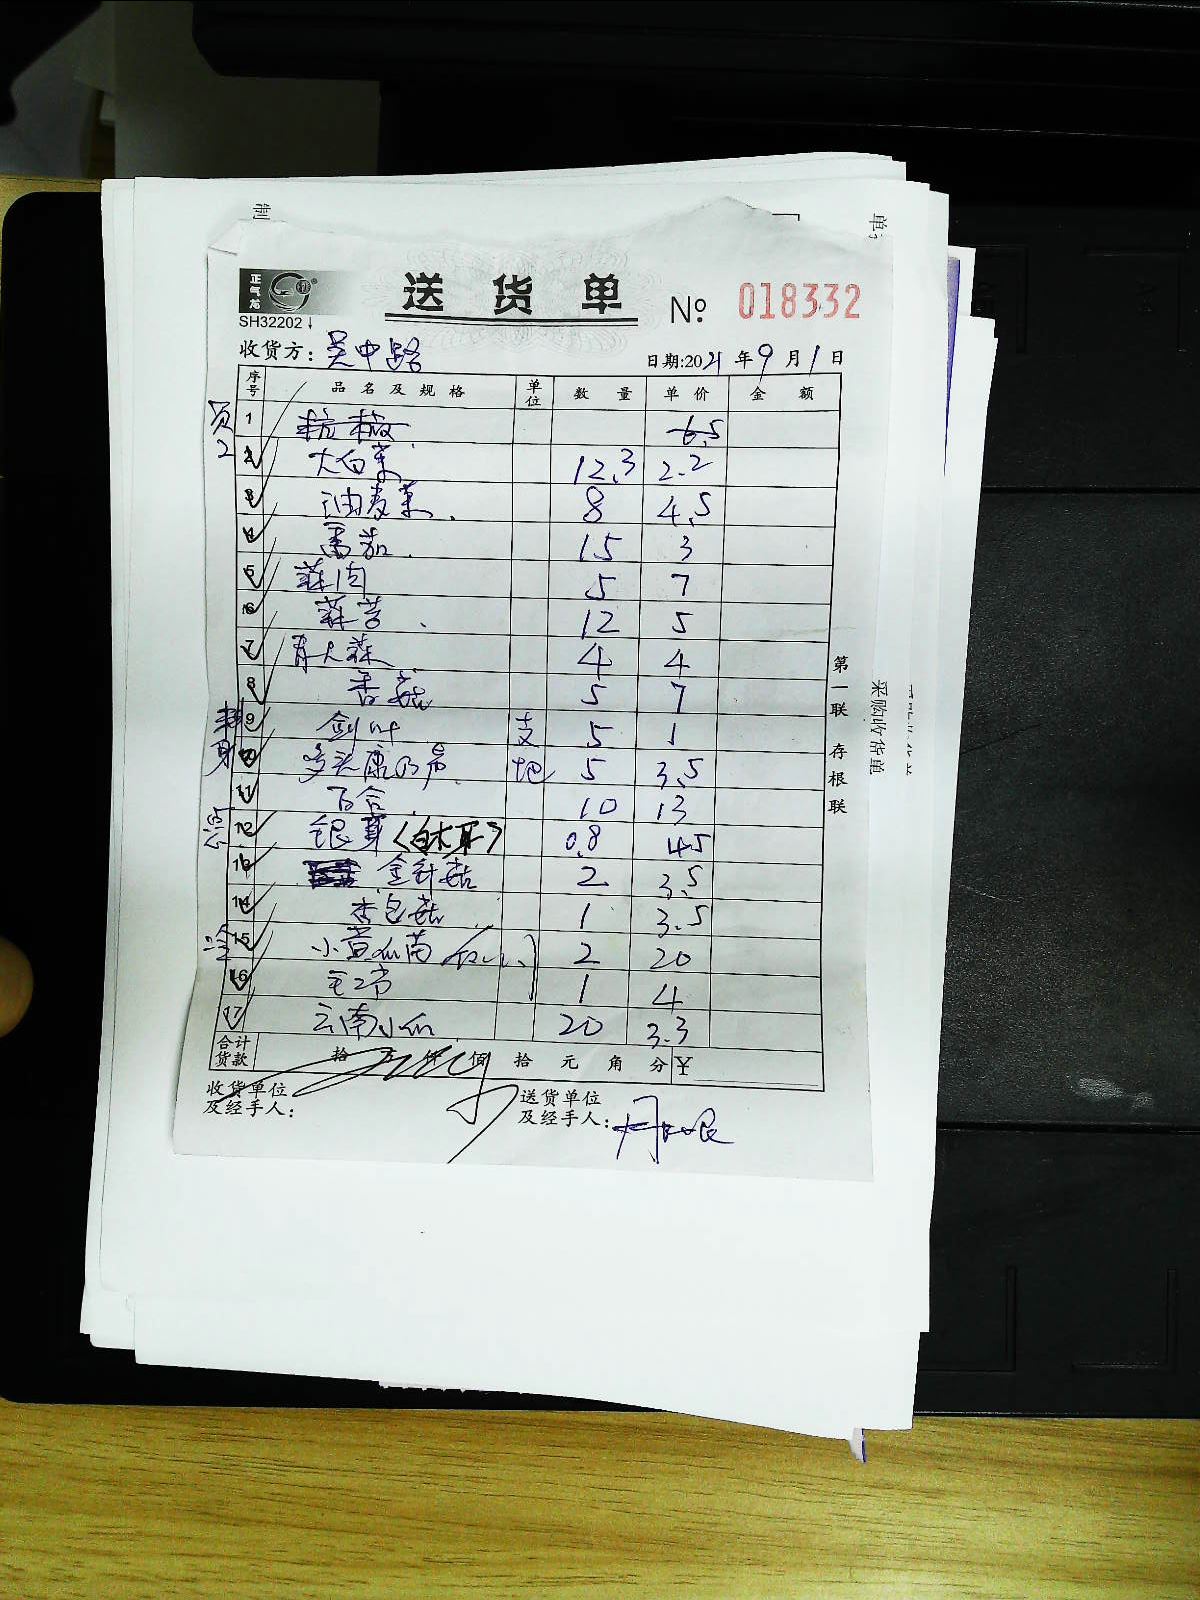 制
单
正气芯
SH32202
送货单 № 018332
收货方: 吴中路 日期:2021年9月1日
序号 品名及规格 单位 数量 单价 金额
员2
1 杭椒 6.5
2 大白菜 12.3 2.2
3 油麦菜 8 4.5
4 番茄 15 3
5 蒜肉 5 7
6 蒜苔 12 5
7 青大蒜 4 4
8 香菇 5 7
9 剑叶 支 5 1
10 多头康乃馨 把 5 3.5
11 百合 10 13
12 银耳(白木耳) 0.8 45
13 金针菇 2 3.5
14 杏包菇 1 3.5
15 小黄瓜苗 2 20
16 1 4
17 云南小瓜 20 3.3
合计货款 拾 万 仟 佰 拾 元 角 分 ¥
收货单位及经手人:
送货单位及经手人:
第一联 存根联
采购收货单